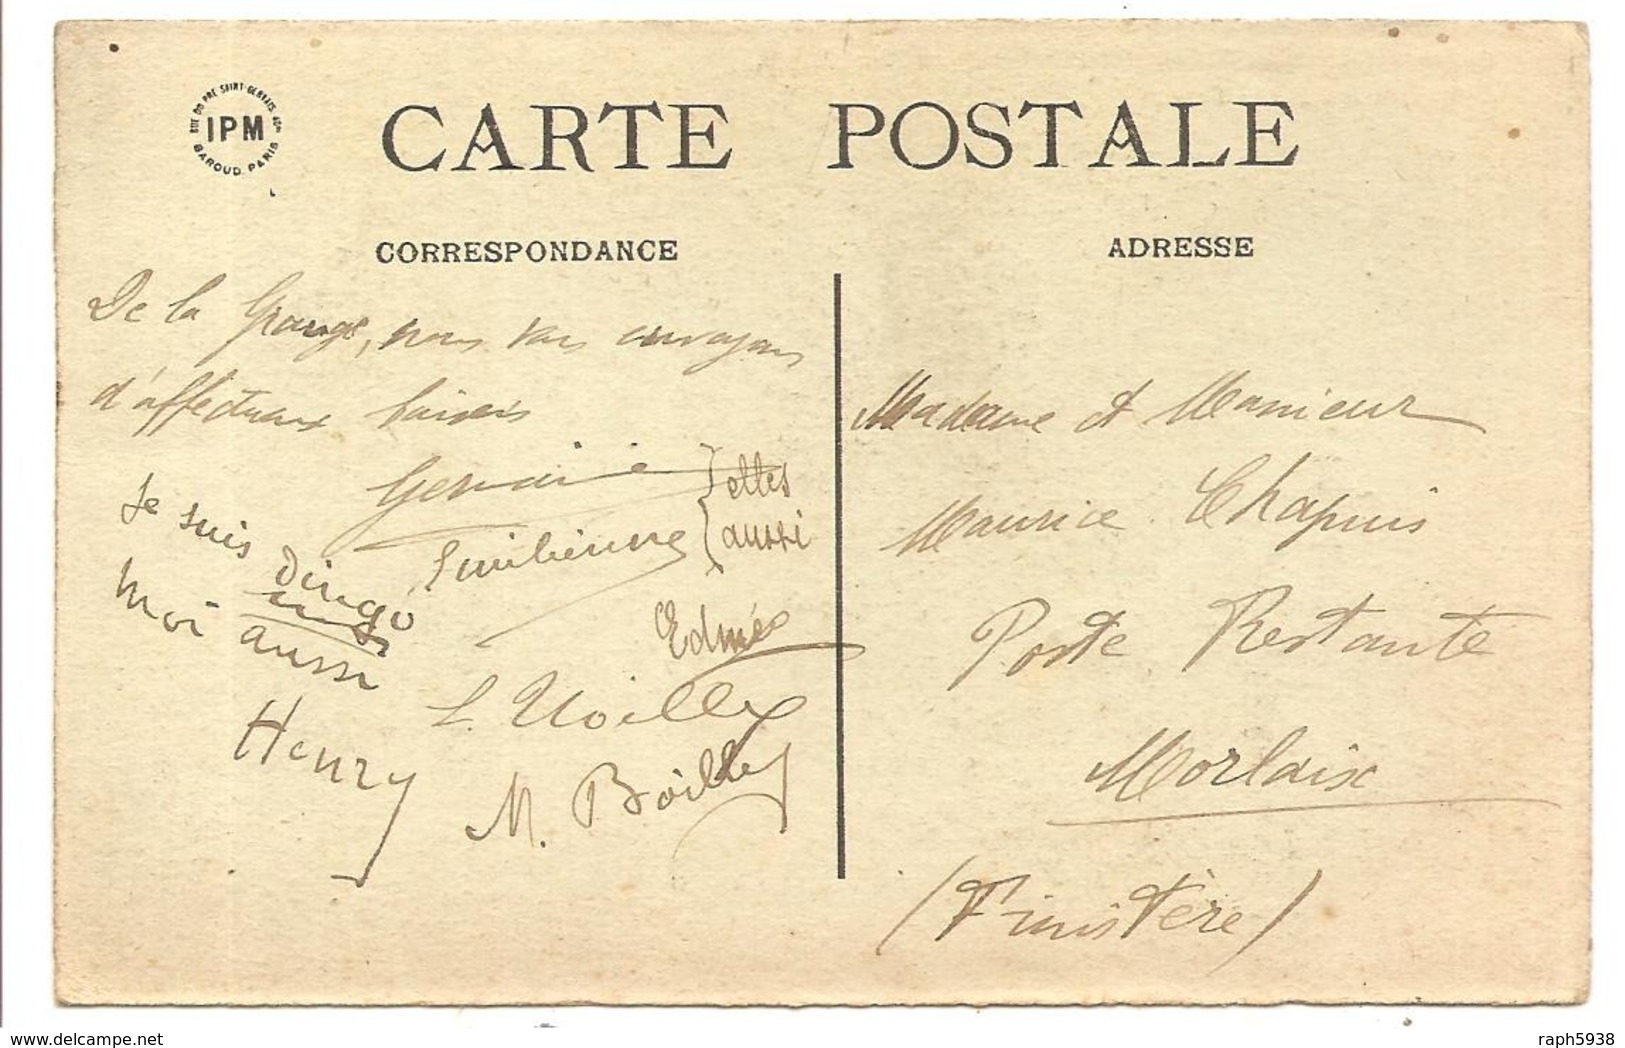 RUE DU PRE SAINT-GERVAIS
IPM
BAROUD. PARIS
CARTE POSTALE
CORRESPONDANCE
ADRESSE
De la Grange, nous vous envoyons
d'affectueux baisers
Germaine } elles
Emilienne } aussi
Je suis Dingo
moi aussi
Edmée
Henry
M. Boilley
Madame et Monsieur
Maurice Chapuis
Poste Restante
Morlaix
(Finistère)
www.delcampe.net
raph5938